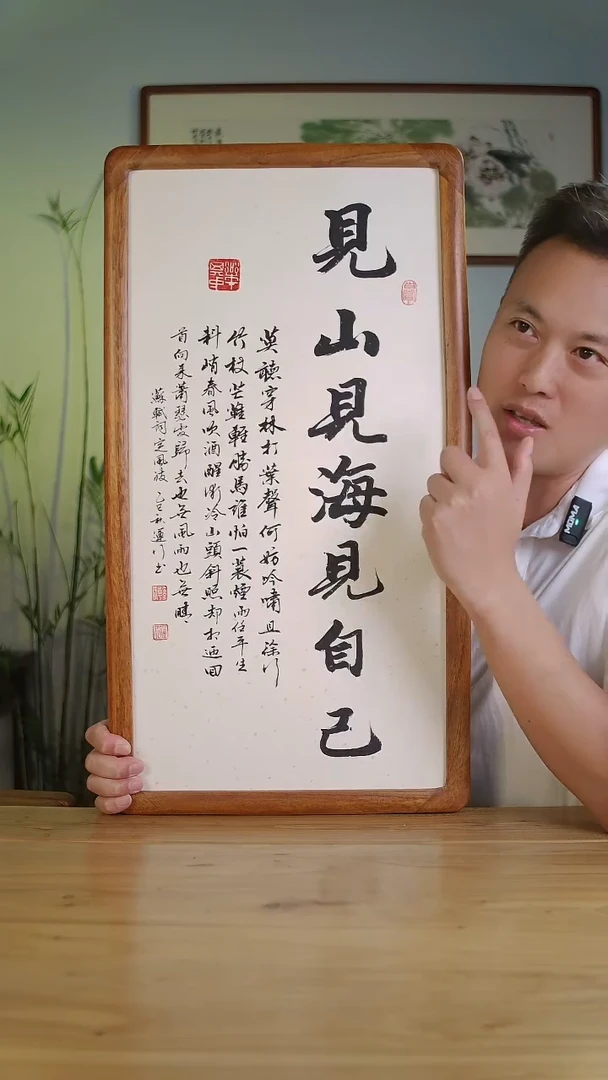 見山見海見自己
莫聽穿林打葉聲何妨吟嘯且徐行
竹杖芒鞋輕勝馬誰怕一蓑煙雨任平生
料峭春風吹酒醒微冷山頭斜照却相迎回
首向來蕭瑟處歸去也無風雨也無晴
蘇軾詞定風波 乙巳秋運行書
MOMA